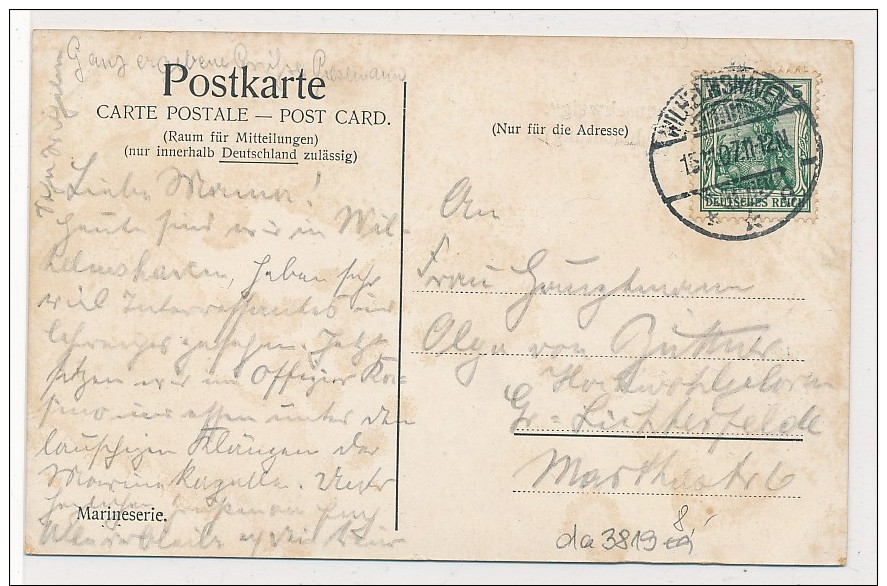 Ganz ergebene
Postkarte
CARTE POSTALE — POST CARD.
(Raum für Mitteilungen)
(nur innerhalb Deutschland zulässig)
Liebe Mama!
Heute sind wir in Wil-
helmshaven, haben sehr
viel Interressantes und
lehrreiches gesehen. Jetzt
sitzen wir im Offizier Ka-
sino und essen unter den
lauschigen Klängen der
Marine Kapelle.
Marineserie.
(Nur für die Adresse)
WILHELMSHAVEN
07.11-12N
5
DEUTSCHES REICH
An
Frau Hauptmann
Olga von
Hochwohlgeboren
Gr-Lichterfelde
Marthastr 6
da3819
8